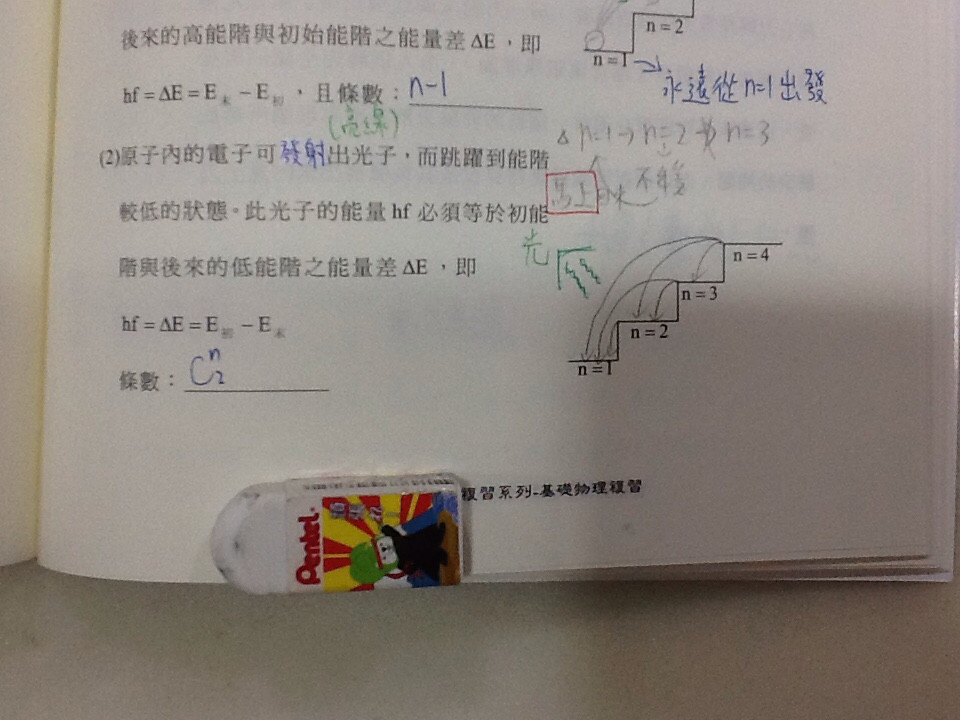 後來的高能階與初始能階之能量差 ΔE，即
n = 2
n = 1
永遠從 n=1 出發
hf = ΔE = E末 − E初，且條數：n−1
(亮線)
n=1 → n=2 n=3
(2)原子內的電子可發射出光子，而跳躍到能階
馬上
較低的狀態。此光子的能量 hf 必須等於初能
光
階與後來的低能階之能量差 ΔE，即
n = 4
n = 3
hf = ΔE = E初 − E末
n = 2
n = 1
條數：C n 2
複習系列-基礎物理複習
Pentel